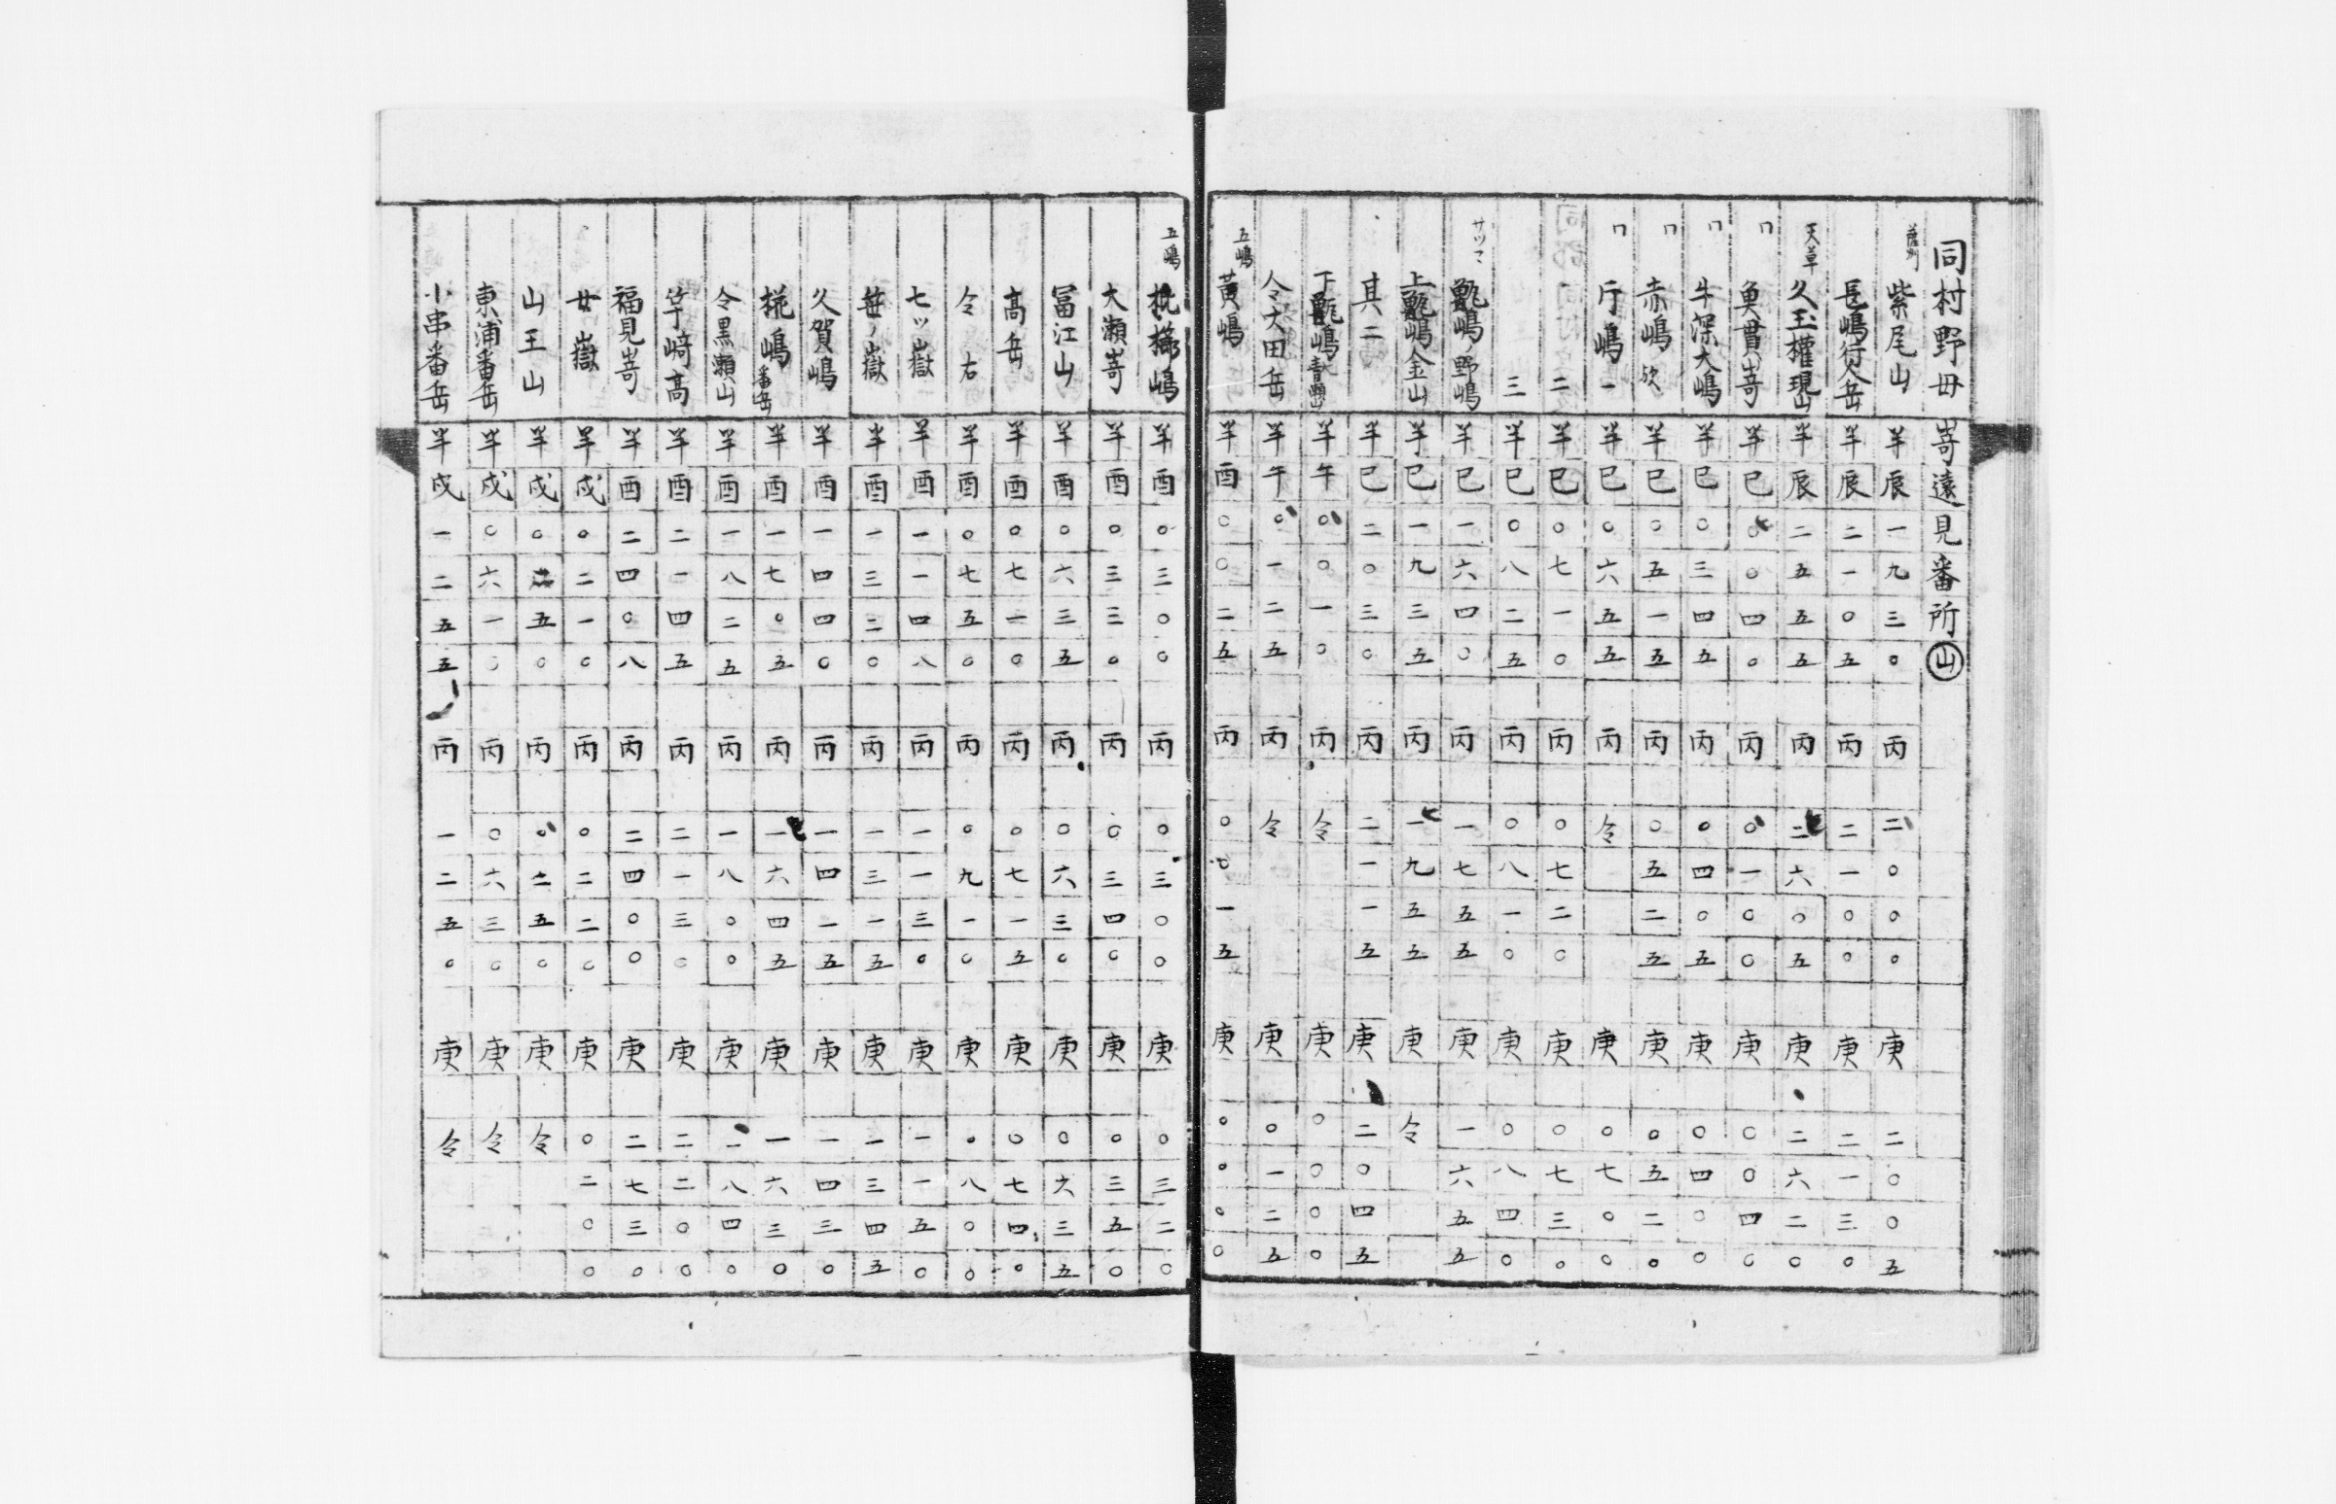 同村野母嵜遠見番所 山
薩州 紫尾山 羊 辰 一九三〇 丙 二〇〇〇 庚 二〇〇五
長嶋行人岳 羊 辰 二一〇五 丙 二一〇〇 庚 二一三〇
天草 久玉權現山 羊 辰 二五五五 丙 二六〇五 庚 二六二〇
口 魚貫嵜 羊 巳 〇〇四〇 丙 〇一〇〇 庚 〇〇四〇
口 牛深大嶋 羊 巳 〇三四五 丙 〇四〇五 庚 〇四〇〇
口 赤嶋 欤 羊 巳 〇五一五 丙 〇五二五 庚 〇五二〇
口 片嶋 一 羊 巳 〇六五五 丙 仝 庚 〇七〇〇
二 羊 巳 〇七一〇 丙 〇七二〇 庚 〇七三〇
三 羊 巳 〇八二五 丙 〇八一〇 庚 〇八四〇
サツマ 甑嶋ノ野嶋 羊 巳 一六四〇 丙 一七五五 庚 一六五五
上甑嶋金山 羊 巳 一九三五 丙 一九五五 庚 仝
其二 羊 巳 二〇三〇 丙 二一一五 庚 二〇四五
下甑嶋 羊 午 〇〇一〇 丙 仝 庚 〇〇〇〇
仝大田岳 羊 午 〇一二五 丙 仝 庚 〇一二五
五嶋 黄嶋 羊 酉 〇〇二五 丙 〇〇一五 庚 〇〇〇〇
五嶋 嶋 羊 酉 〇三〇〇 丙 〇三〇〇 庚 〇三二〇
大瀬嵜 羊 酉 〇三三〇 丙 〇三四〇 庚 〇三五〇
冨江山 羊 酉 〇六三五 丙 〇六三〇 庚 〇六三五
髙岳 羊 酉 〇七一〇 丙 〇七一五 庚 〇七四〇
仝 右 羊 酉 〇七五〇 丙 〇九一〇 庚 〇八〇〇
七ツ嶽 羊 酉 一一四八 丙 一一三〇 庚 一一五〇
ノ嶽 羊 酉 一三二〇 丙 一三一五 庚 一三四五
久賀嶋 羊 酉 一四四〇 丙 一四一五 庚 一四三〇
椛嶋番岳 羊 酉 一七〇五 丙 一六四五 庚 一六三〇
仝黒瀬山 羊 酉 一八二五 丙 一八〇〇 庚 一八四〇
竿﨑髙 羊 酉 二一四五 丙 二一三〇 庚 二二〇〇
福見嵜 羊 酉 二四〇八 丙 二四〇〇 庚 二七三〇
廿嶽 羊 戌 〇二一〇 丙 〇二二〇 庚 〇二〇〇
山王山 羊 戌 〇 五〇 丙 〇二五〇 庚 仝
東浦番岳 羊 戌 〇六一〇 丙 〇六三〇 庚 仝
小串番岳 羊 戌 一二五五 丙 一二五〇 庚 仝